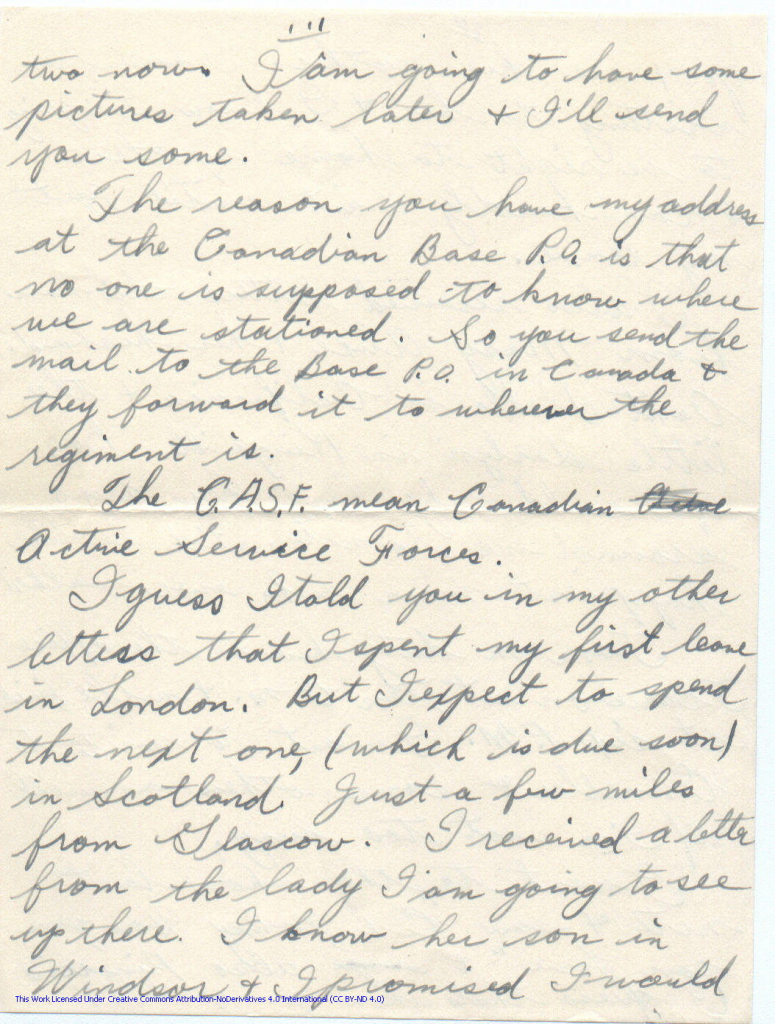 111
two now. I am going to have some
pictures taken later & I'll send
you some.
The reason you have my address
at the Canadian Base P.O. is that
no one is supposed to know where
we are stationed. So you send the
mail to the Base P.O. in Canada &
they forward it to wherever the
regiment is.
The C.A.S.F. mean Canadian Active
Active Service Forces.
I guess I told you in my other
letters that I spent my first leave
in London. But I expect to spend
the next one, (which is due soon)
in Scotland. Just a few miles
from Glascow. I received a letter
from the lady I am going to see
up there. I know her son in
Windsor & I promised I would
This Work Licensed Under Creative Commons Attribution-NoDerivatives 4.0 International (CC BY-ND 4.0)